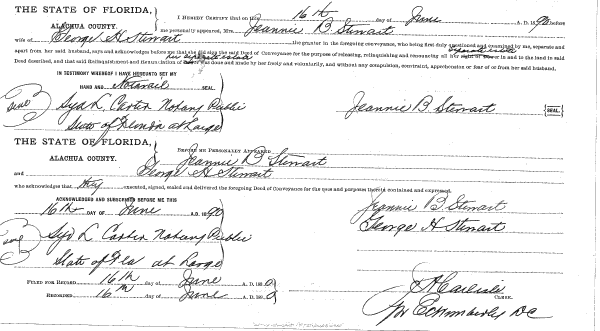 THE STATE OF FLORIDA,
ALACHUA COUNTY.
I HEREBY CERTIFY that on this 16th day of June A. D. 1890 before
me personally appeared, Mrs. Jeannie B Stewart
wife of George H Stewart the grantor in the foregoing conveyance, who being first duly questioned and examined by me, separate and
apart from her said husband, says and acknowledges before me that she did sign the said Deed of Conveyance for the purpose of releasing, relinquishing and renouncing all her separate estate in and to the land in said
Deed described, and that said Relinquishment and Renunciation of her separate estate was done and made by her freely and voluntarily, and without any compulsion, constraint, apprehension or fear of or from her said husband.
IN TESTIMONY WHEREOF I HAVE HEREUNTO SET MY
HAND AND Notarial SEAL.
Syd L. Carter Notary Public
State of Florida at Large
Jeannie B. Stewart SEAL.
THE STATE OF FLORIDA,
ALACHUA COUNTY.
BEFORE ME PERSONALLY APPEARED
Jeannie B Stewart
and George H Stewart
who acknowledges that they executed, signed, sealed and delivered the foregoing Deed of Conveyance for the uses and purposes therein contained and expressed.
ACKNOWLEDGED AND SUBSCRIBED BEFORE ME THIS
16th DAY OF June A. D. 1890
Jeannie B. Stewart
George H Stewart
Syd L Carter Notary Public
State of Fla at Large
FILED FOR RECORD 16th day of June A. D. 1890
RECORDED 16th day of June A. D. 1890
CLERK.
D C